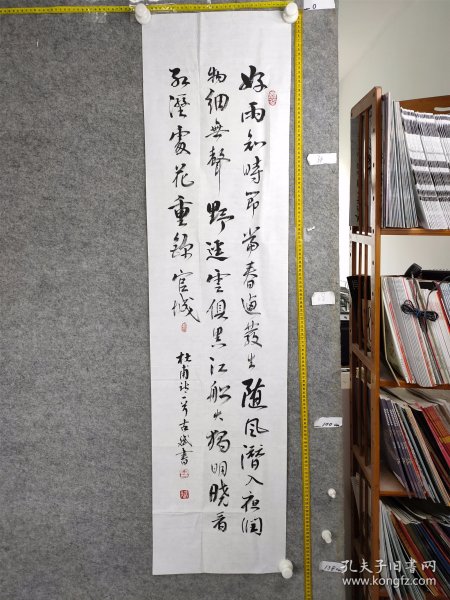 好雨知時節當春迺發生随風潛入夜潤
物細無聲野逕雲俱黑江船火獨明曉看
紅溼處花重錦官城
杜甫詩一首古書
孔夫子旧书网
www.kongfz.com